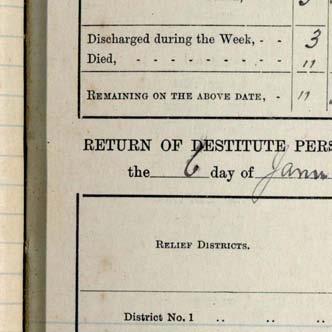 Discharged during the Week, - - 3
Died, - - - - - - - - - "
Remaining on the above date, - "
RETURN OF DESTITUTE PERS
the 6 day of Janu
Relief Districts.
District No. 1 .. .. ..